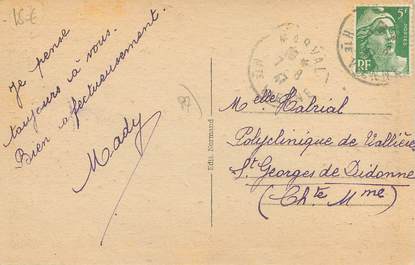 18 €
Je pense
toujours à vous.
Bien affectueusement.
Mady
Edit. Normand
5F
POSTES
RF
Melle Halrial
Polyclinique de Vallière
St Georges de Didonne
(Chte Mme)